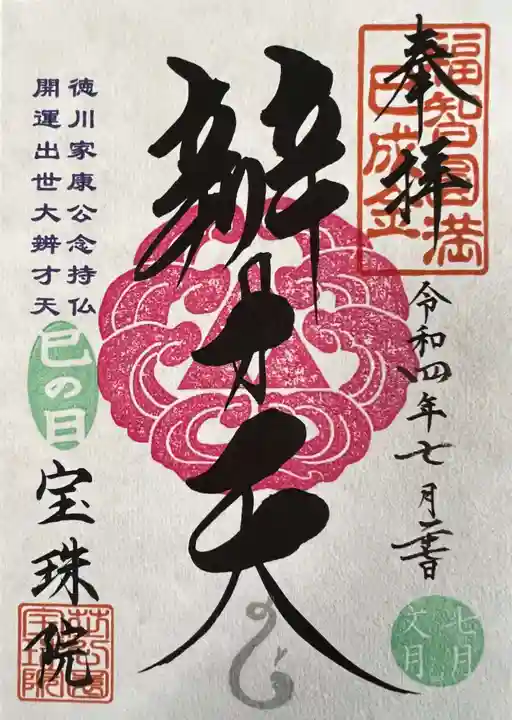 奉拝
福智圓満
巳成金
令和四年七月
七月
文月
辨才天
徳川家康公念持仏
開運出世大辨才天
巳の日
宝珠院